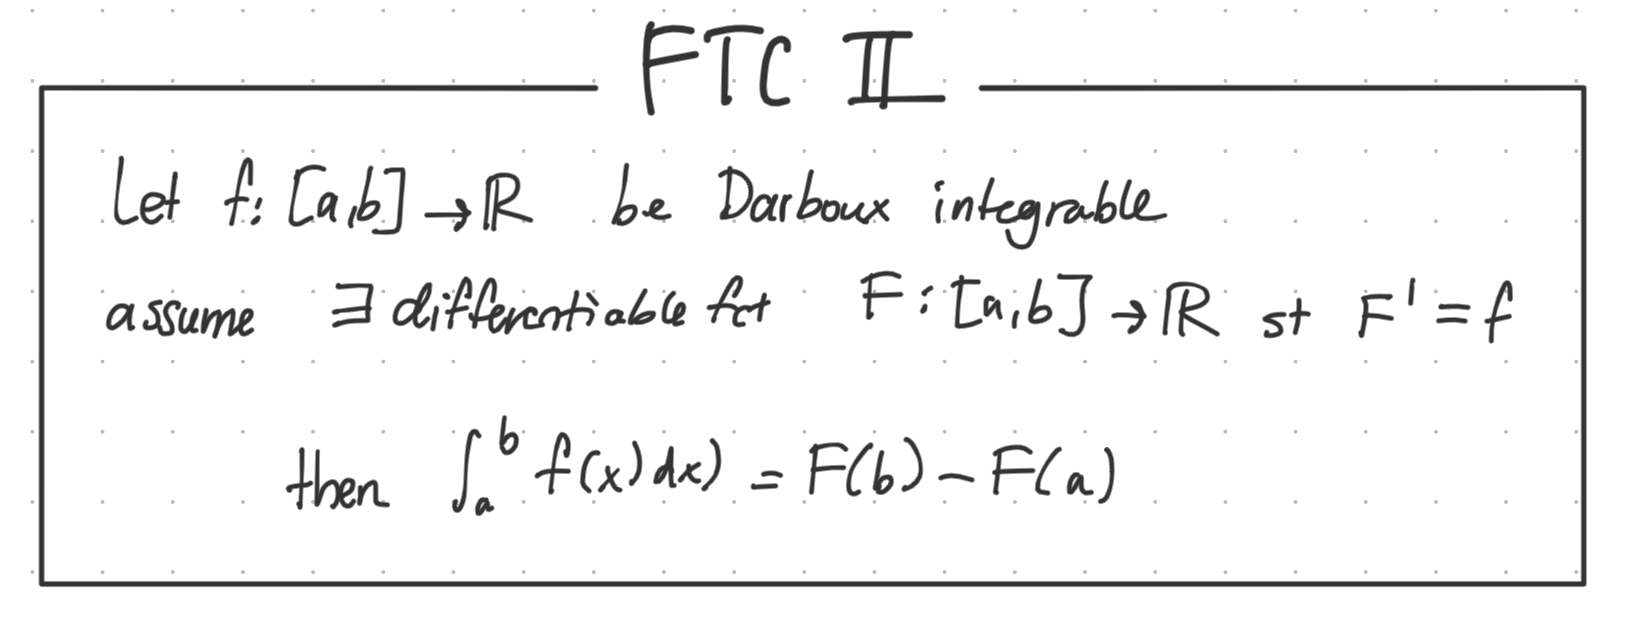 FTC II
Let f: [a,b] → ℝ be Darboux integrable
assume ∃ differentiable fct F: [a,b] → ℝ st F' = f
then ∫_a^b f(x)dx) = F(b) - F(a)